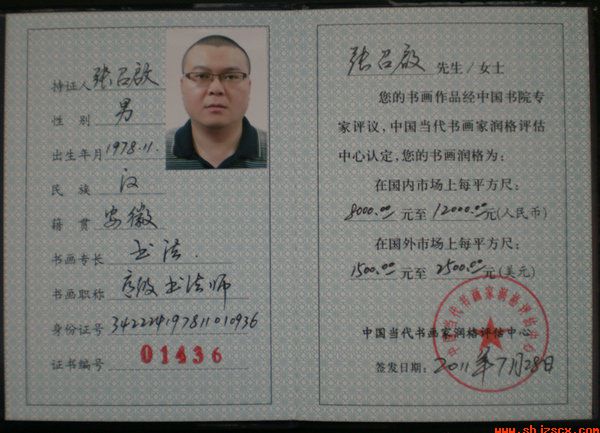 持证人 张召啟
性 别 男
出生年月 1978.11.
民 族 汉
籍 贯 安徽
书画专长 书法.
书画职称 高级书法师
身份证号 342224197811010936
证书编号 01436
张召啟 先生/女士
您的书画作品经中国书院专
家评议，中国当代书画家润格评估
中心认定，您的书画润格为：
在国内市场上每平方尺：
8000.00 元至 12000.00 元(人民币)
在国外市场上每平方尺：
1500.00 元至 2500.00 元(美元)
中国当代书画家润格评估中心
签发日期：2011年7月28日
中国当代书画家润格评估中心
www.shjzscx.com